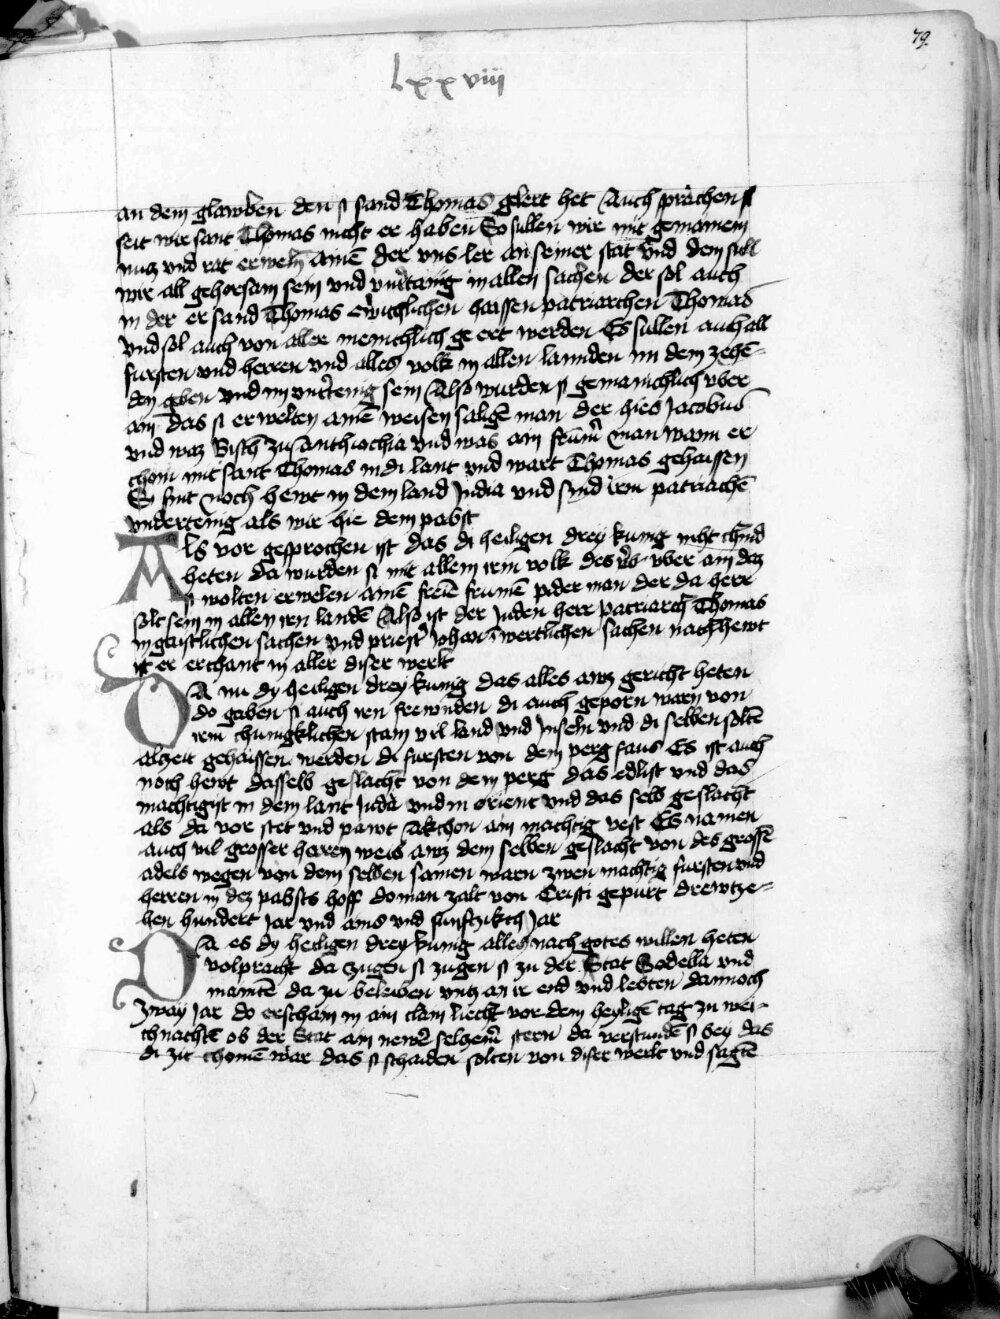 79.
lxxviii
an dem glawben den si sand Thomas gelert het Auch sprachen si
seit wir sant Thomas nicht er haben So sullen wir mit gemainem
nutz vnd rat erweln ainē der vns ler an seiner stat vnd dem sull
wir all gehorsam sein vnd vntertanig in allen sachen der sol auch
in der er sand Thomas ewichlichen haissen patriarchen Thomas
vnd sol auch von aller menichlich ge ert werden Es sullen auch all
fursten vnd herren vnd alles volk in allen lannden im dem zehē-
den geben vnd im vntertenig sein Also wurden si gemainchlich vber
ain das si erwelten ainē weisen saligē man der hies Jacobus
vnd waz Bisch zu Anthiochia vnd was ain frūm man wann er
chom mit sant Thomas in di lant vnd wart Thomas gehaissen
So sint noch hewt in dem land India vnd sind irem patriachē
vnderteing als wir hie dem pabst
Als vor gesprochen ist das di heiligen drey kunig nicht chind
heten da wurden si mit allem irem volk des vber ain daz
si wolten erwelen ainē freiē frumē pider man der da herr
solt sein in allen iren landē Also ist der Juden herr patriarch Thomas
in gaistlichen sachen vnd priest Johan in wertlichen sachen nach hewt
ist er erchant in aller diser werlt
Da nu dy heiligen drey kunig das alles awz gericht heten
do gaben si auch iren frewnden di auch geporn warn von
irem chunigklichen stam vil land vnd Inseln vnd di selben soltē
alzeit gehaissen werden di fursten von dem perg faus Es ist auch
noch hewt dasselb geslacht von dem perg das edlist vnd das
machtigist in dem lant Juda vnd in orient vnd das selb geslacht
als da vor stet vnd pawt Akchon ain machtig vest Es namen
auch vil grosser herren weib awz dem selben geslacht von des grossē
adels wegen von dem selben samen warn zwen machtig fursten vnd
herren in dez pabsts hoff do man zalt von Cristi gepurt drewtze-
hen hundert jar vnd ains vnd funftzikch Jar
Da es dy heiligen drey kunig alles nach gotes willen heten
volpracht da zugen si zugen si zu der Stat Sodella vnd
maintē da zu beleiben vntz an ir end vnd lebten dannoch
zway Jar do erscham in ain clain liecht vor dem heyligē tag zu wei-
chnachtē ob der Stat ain newer selzem stern da verstundē si bey das
di zit chomē war das si schaiden solten von diser werlt vnd sagtē